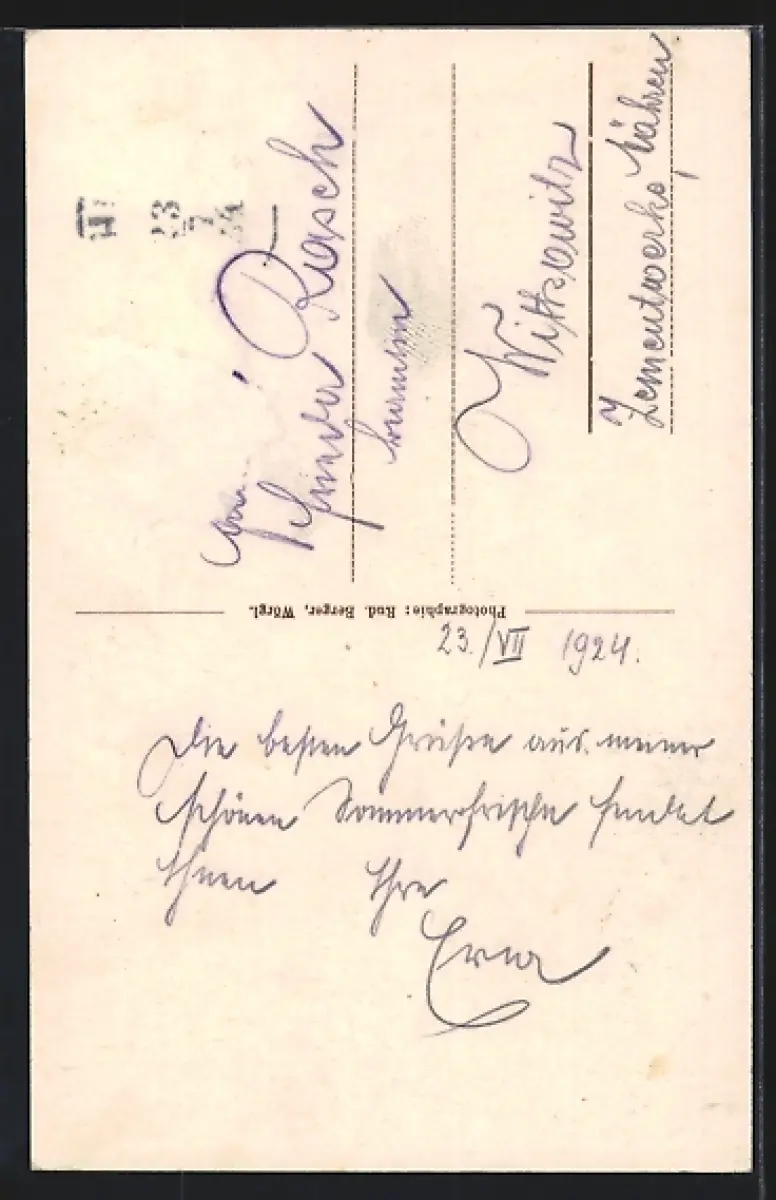 23
7
24
Rasch
Wittkowitz
Zementwerke, Mähren
Photographie: Rud. Berger, Wörgl.
23./VII 1924.
Die besten Grüße aus meiner
schönen Sommerfrische sendet
Ihnen Ihre
Erna